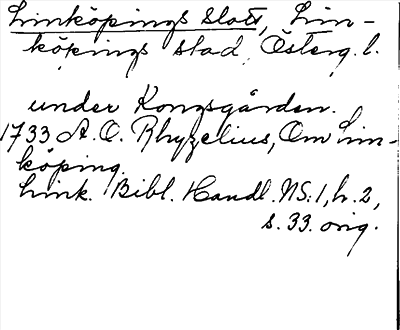 Linköpings slott, Lin-
köpings stad, Österg. l.
under Kongsgården.
1733 A. O. Rhyzelius, Om Lin-
köping.
Link. Bibl. Handl. NS: 1, h. 2,
s. 33. orig.